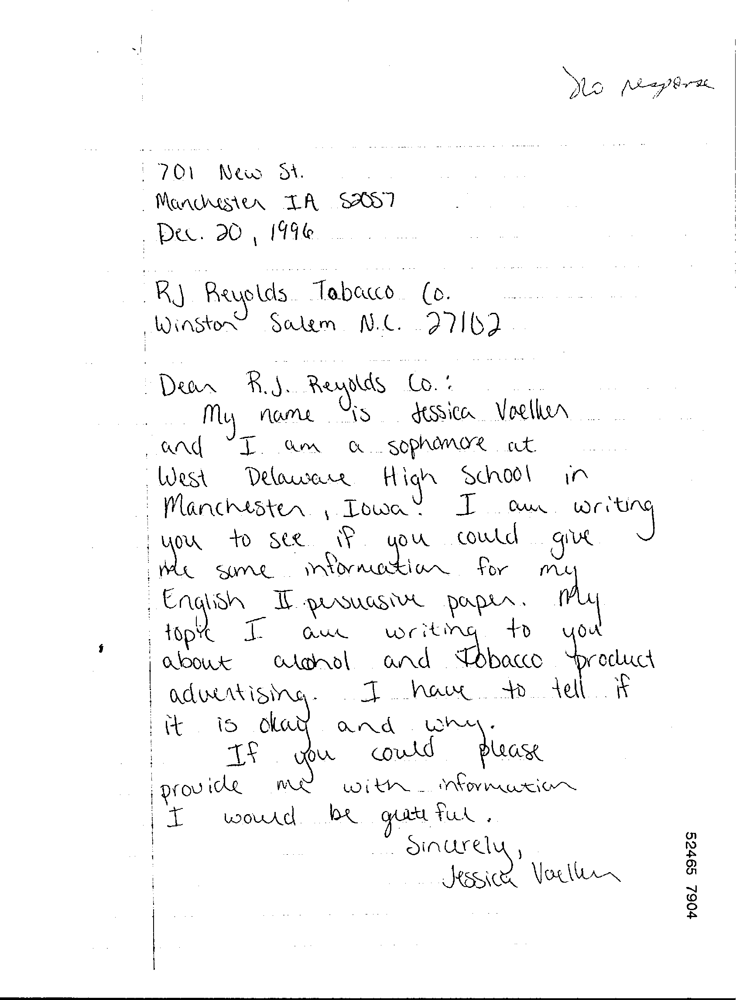 No response
701 New St.
Manchester IA 52057
Dec. 20, 1996
RJ Reyolds Tobacco Co.
Winston Salem N.C. 27102
Dear R.J. Reyolds Co.:
My name is Jessica Voelker
and I am a sophomore at
West Delaware High School in
Manchester, Iowa. I am writing
you to see if you could give
me some information for my
English II persuasive paper. My
topic I am writing to you
about alcohol and Tobacco product
advertising. I have to tell if
it is okay and why.
If you could please
provide me with information
I would be grateful.
Sincerely,
Jessica Voelker
52465 7904